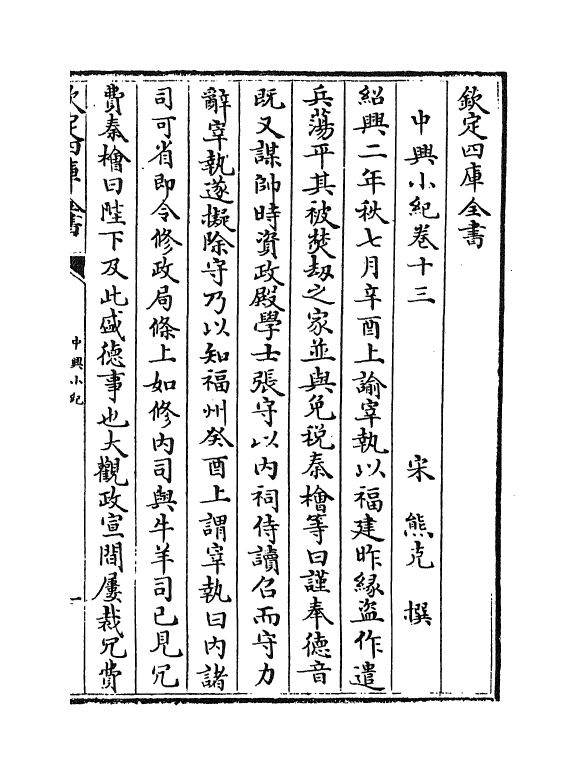 欽定四庫全書
中興小紀卷十三
宋 熊克 撰
紹興二年秋七月辛酉上諭宰執以福建昨緣盜作遣
兵蕩平其被焚刼之家並與免税秦檜等曰謹奉德音
既又謀帥時資政殿學士張守以内祠侍讀召而守力
辭宰執遂擬除守乃以知福州癸酉上謂宰執曰内諸
司可省即令修政局條上如修内司與牛羊司已見冗
費秦檜曰陛下及此盛德事也大觀政宣間屢裁冗費
欽定四庫全書
中興小紀
一